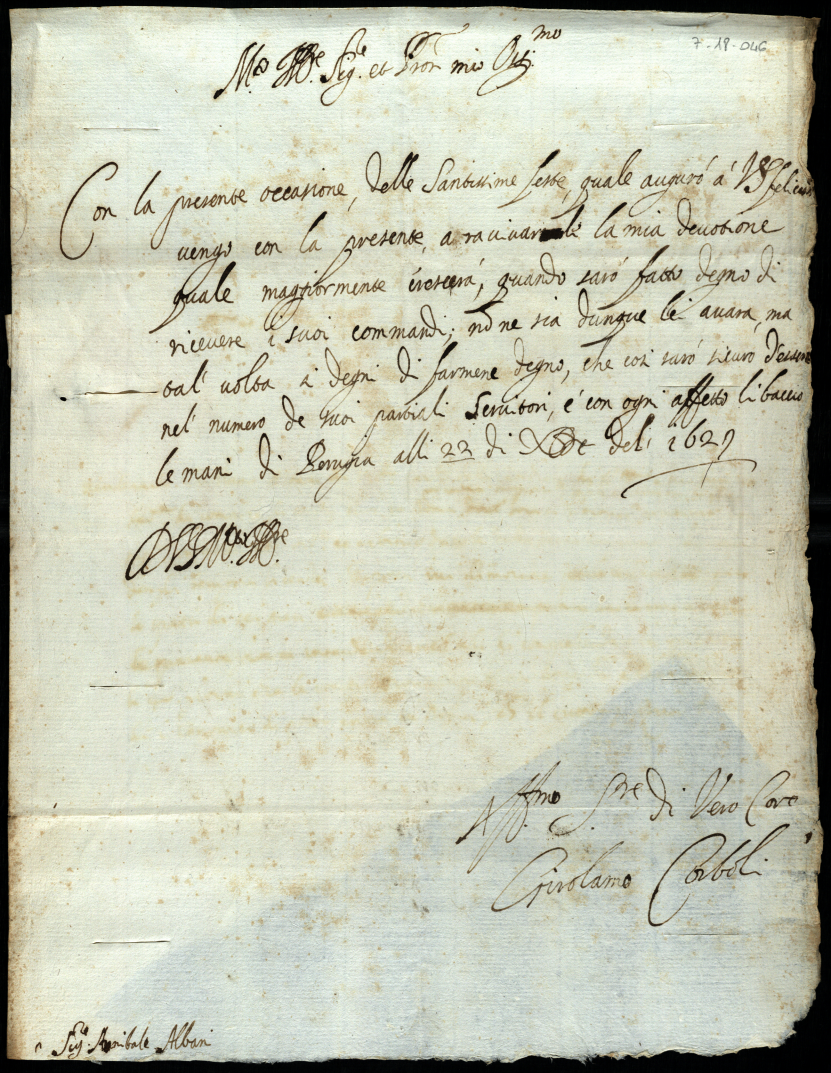 7-18-046
M.to Ill.re Sig.re et Pron mio Oss.mo
Con la presente occasione, delle Santissime feste, quale auguró á VS felici
vengo con la presente, a ravivar la mia devotione
quale maggiormente crescerá, quando saró fatto degno di
ricevere i suoi commandi; nò ne sia dunque lei avara, ma
tal' volta si degni di farmene degno, che cosi saró sicuro d'essere
nel' numero de suoi partiali Servitori, é con ogni affetto li baccio
le mani di Perugia alli 22 di Xbre del' 1627
D VS M.to Ill.re
Aff.mo S.re di Vero Core
Girolamo Corboli
Sig.r Annibale Albani